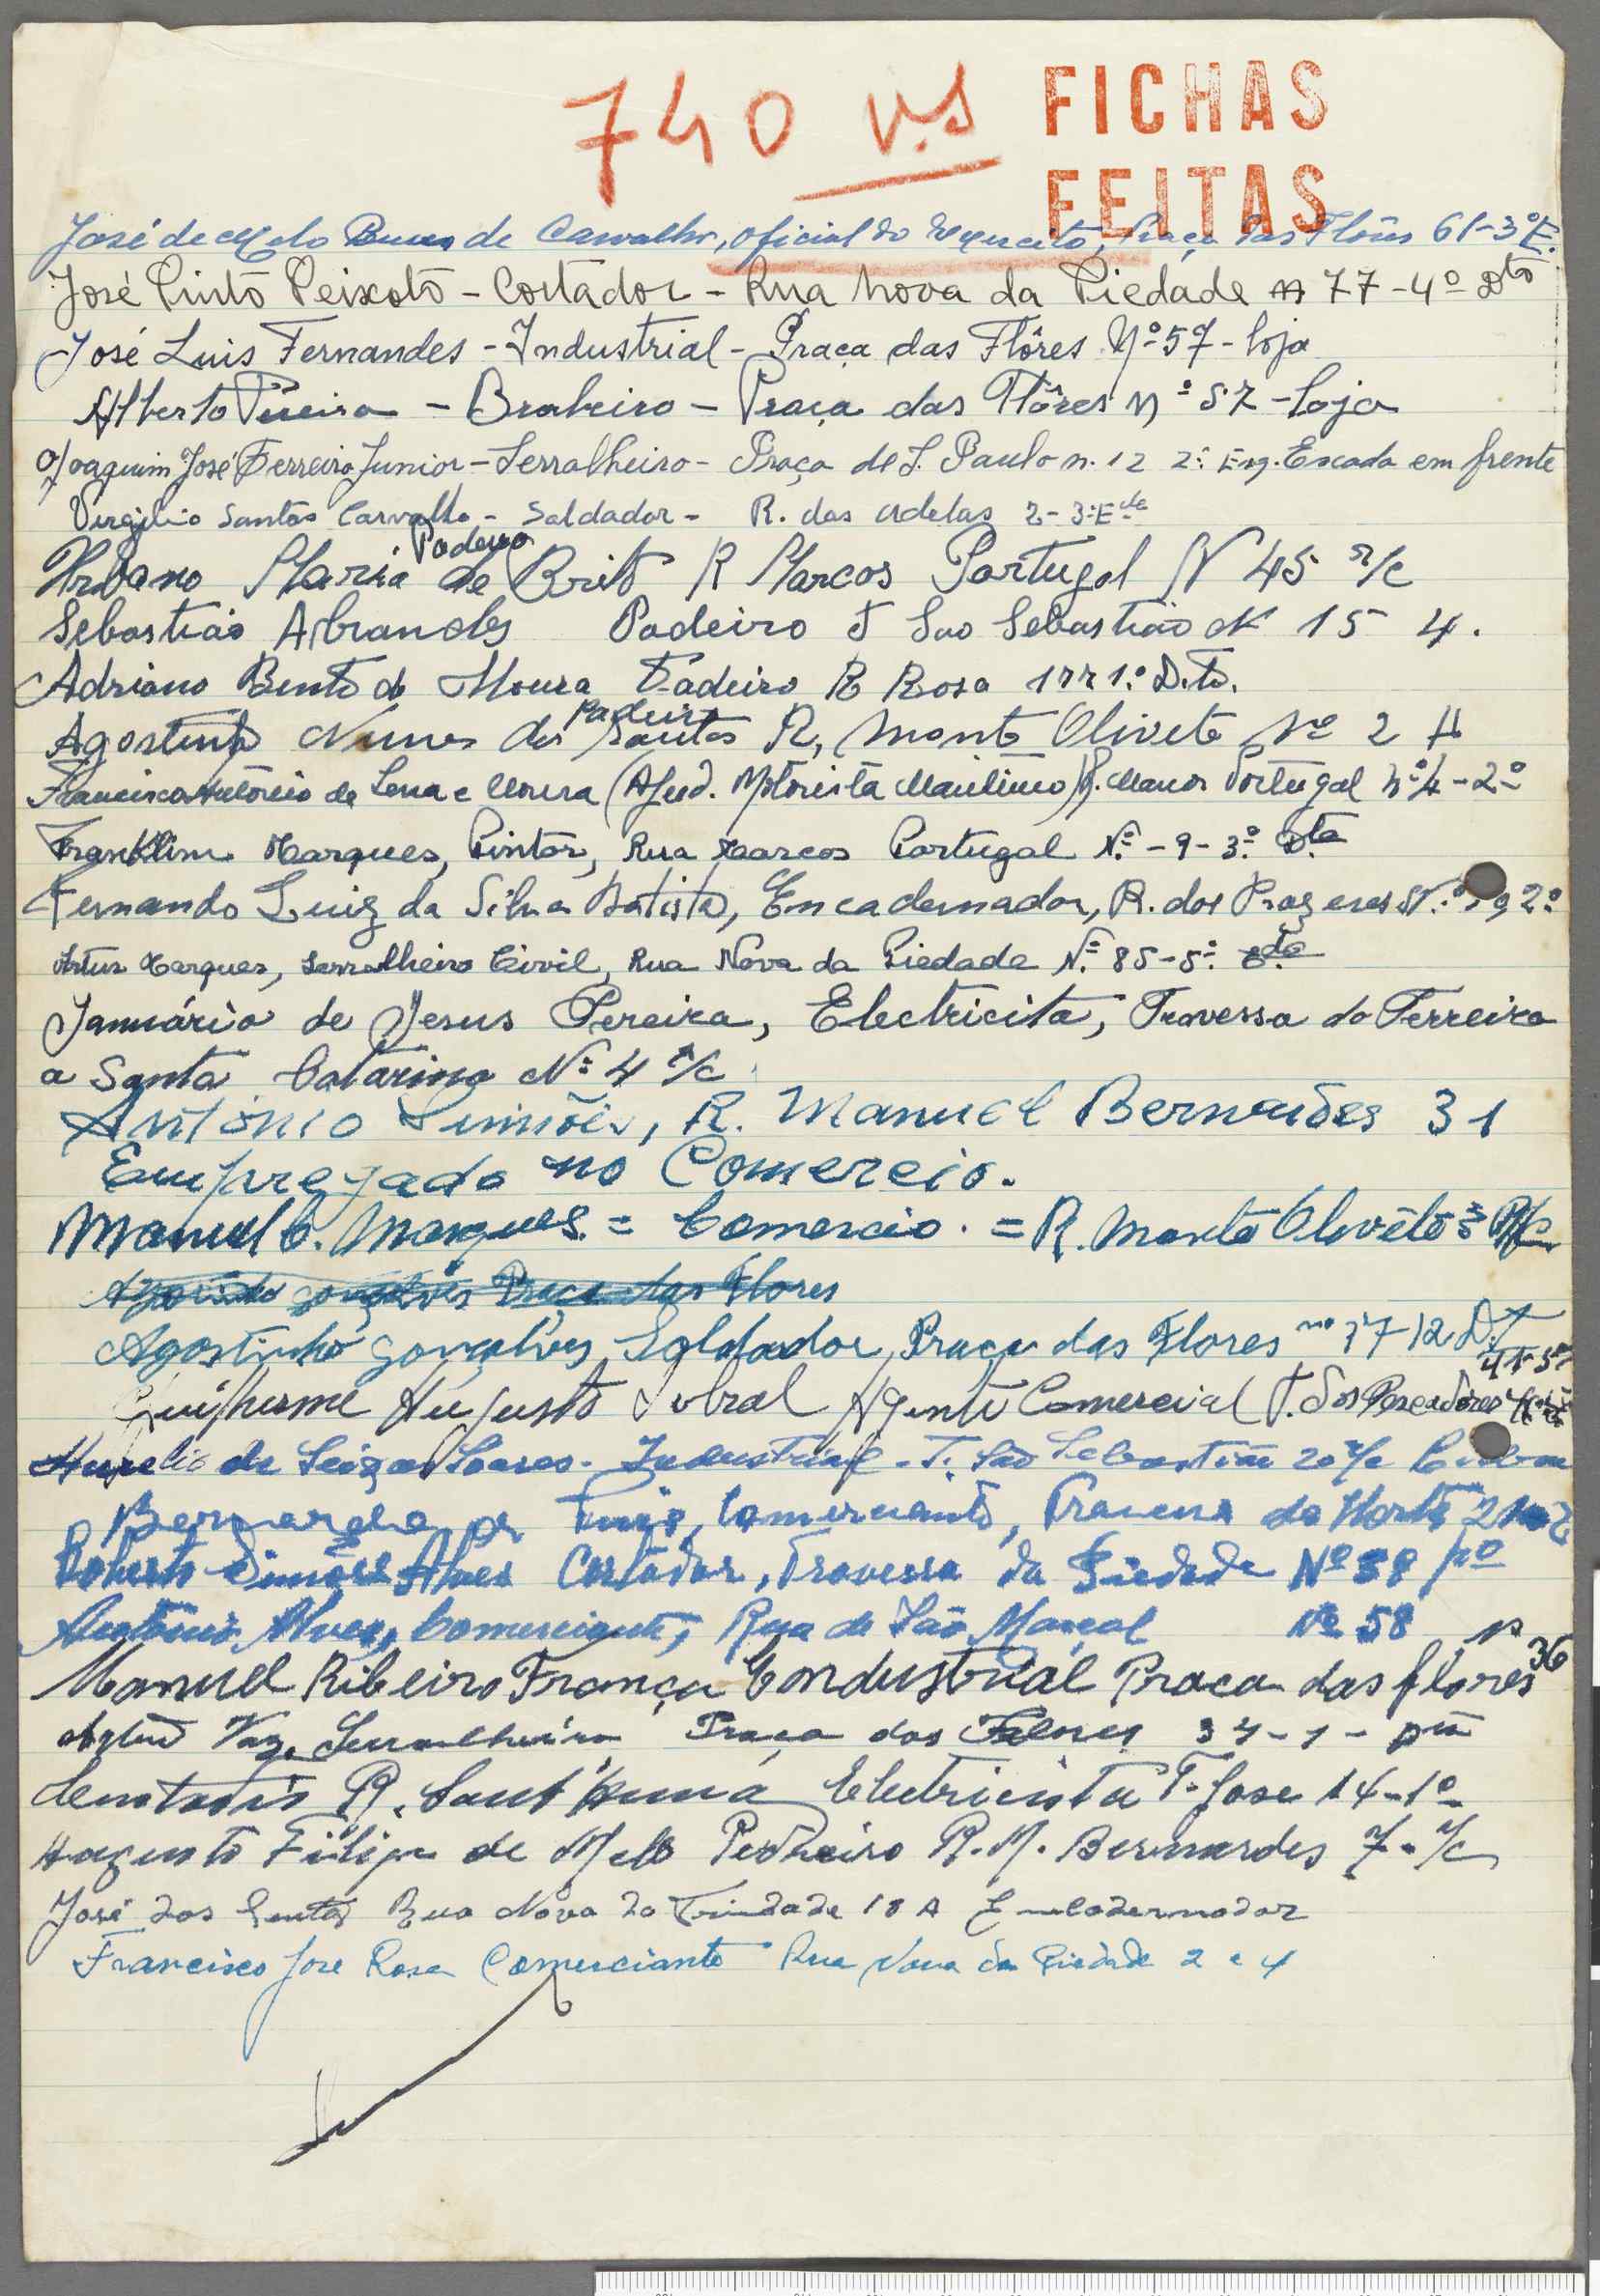 740 v.s
FICHAS
FEITAS
José de Melo de Carvalho, oficial do Exercito, Praça das Flôres 61-3ºE.
José Pinto Peixoto - Cortador - Rua Nova da Piedade 77-4º Dto
José Luis Fernandes - Industrial - Praça das Flôres Nº 57 - loja
Alberto Pereira - Praça das Flôres nº 57 - loja
Joaquim José Ferreira Junior - Serralheiro - Praça de S. Paulo n. 12 2º Esq. Escada em frente
Virgilio Santos Carvalho - Soldador - R. das Adelas 2-3ºEdo
Padeiro
Urbano Maria de Brito R Marcos Portugal N 45 r/c
Sebastião Abrandes Padeiro T Sao Sebastião N 15 4.
Adriano Bento de Moura Padeiro R Rosa 1º Dto.
Padeiro
Agostinho Nunes dos Santos R, Monte Olivete Nº 2 A
Francisco António de Sena e Moura (Ajud. Motorista Maritimo) R. Marcos Portugal nº 4-2º
Franklim Marques, Pintor, Rua Marcos Portugal Nº - 9 - 3º Dto
Fernando Luiz da Silva Batista, Encadernador, R. dos Prazeres Nº 2º
Artur Marques, Serralheiro Civil, Rua Nova da Piedade Nº 85-5º
Januário de Jesus Pereira, Electricita, Travessa do Terreiro
a Santa Catarina Nº 4 r/c
António Simões, R. Manuel Bernardes 31
Empregado no Comercio.
Manuel C. Marques. = Comercio. = R. Monte Olivêto 3 R/c
Agostinho gonçalves Praça das Flores
Agostinho gonçalves, Soldador, Praça das Flores nº 17
Guilherme Augusto Sobral Agente Comercial T. dos Pescadores
Aurelio de Seiça Soares - Industrial - T. São Sebastião 20 r/c Lisboa
Bernardo Comerciante, Travessa da Horta
Roberto Simões Alves Cortador, Travessa da Piedade Nº 38
António Alves, Comerciante, Rua de São Marçal Nº 58
Manuel Ribeiro França Endustrial Praca das flores nº 36
Artur Vaz Serralheiro Praça das Flores 34-1-
R. Sant'Anna Electricista T. Jose 14-1º
Augusto Filipe de Melo Pedreiro R. M. Bernardes 7 - r/c
José dos Santos Rua Nova da Trindade 18 A Encadernador
Francisco Jose Rosa Comerciante Rua Nova da Piedade 2 e 4